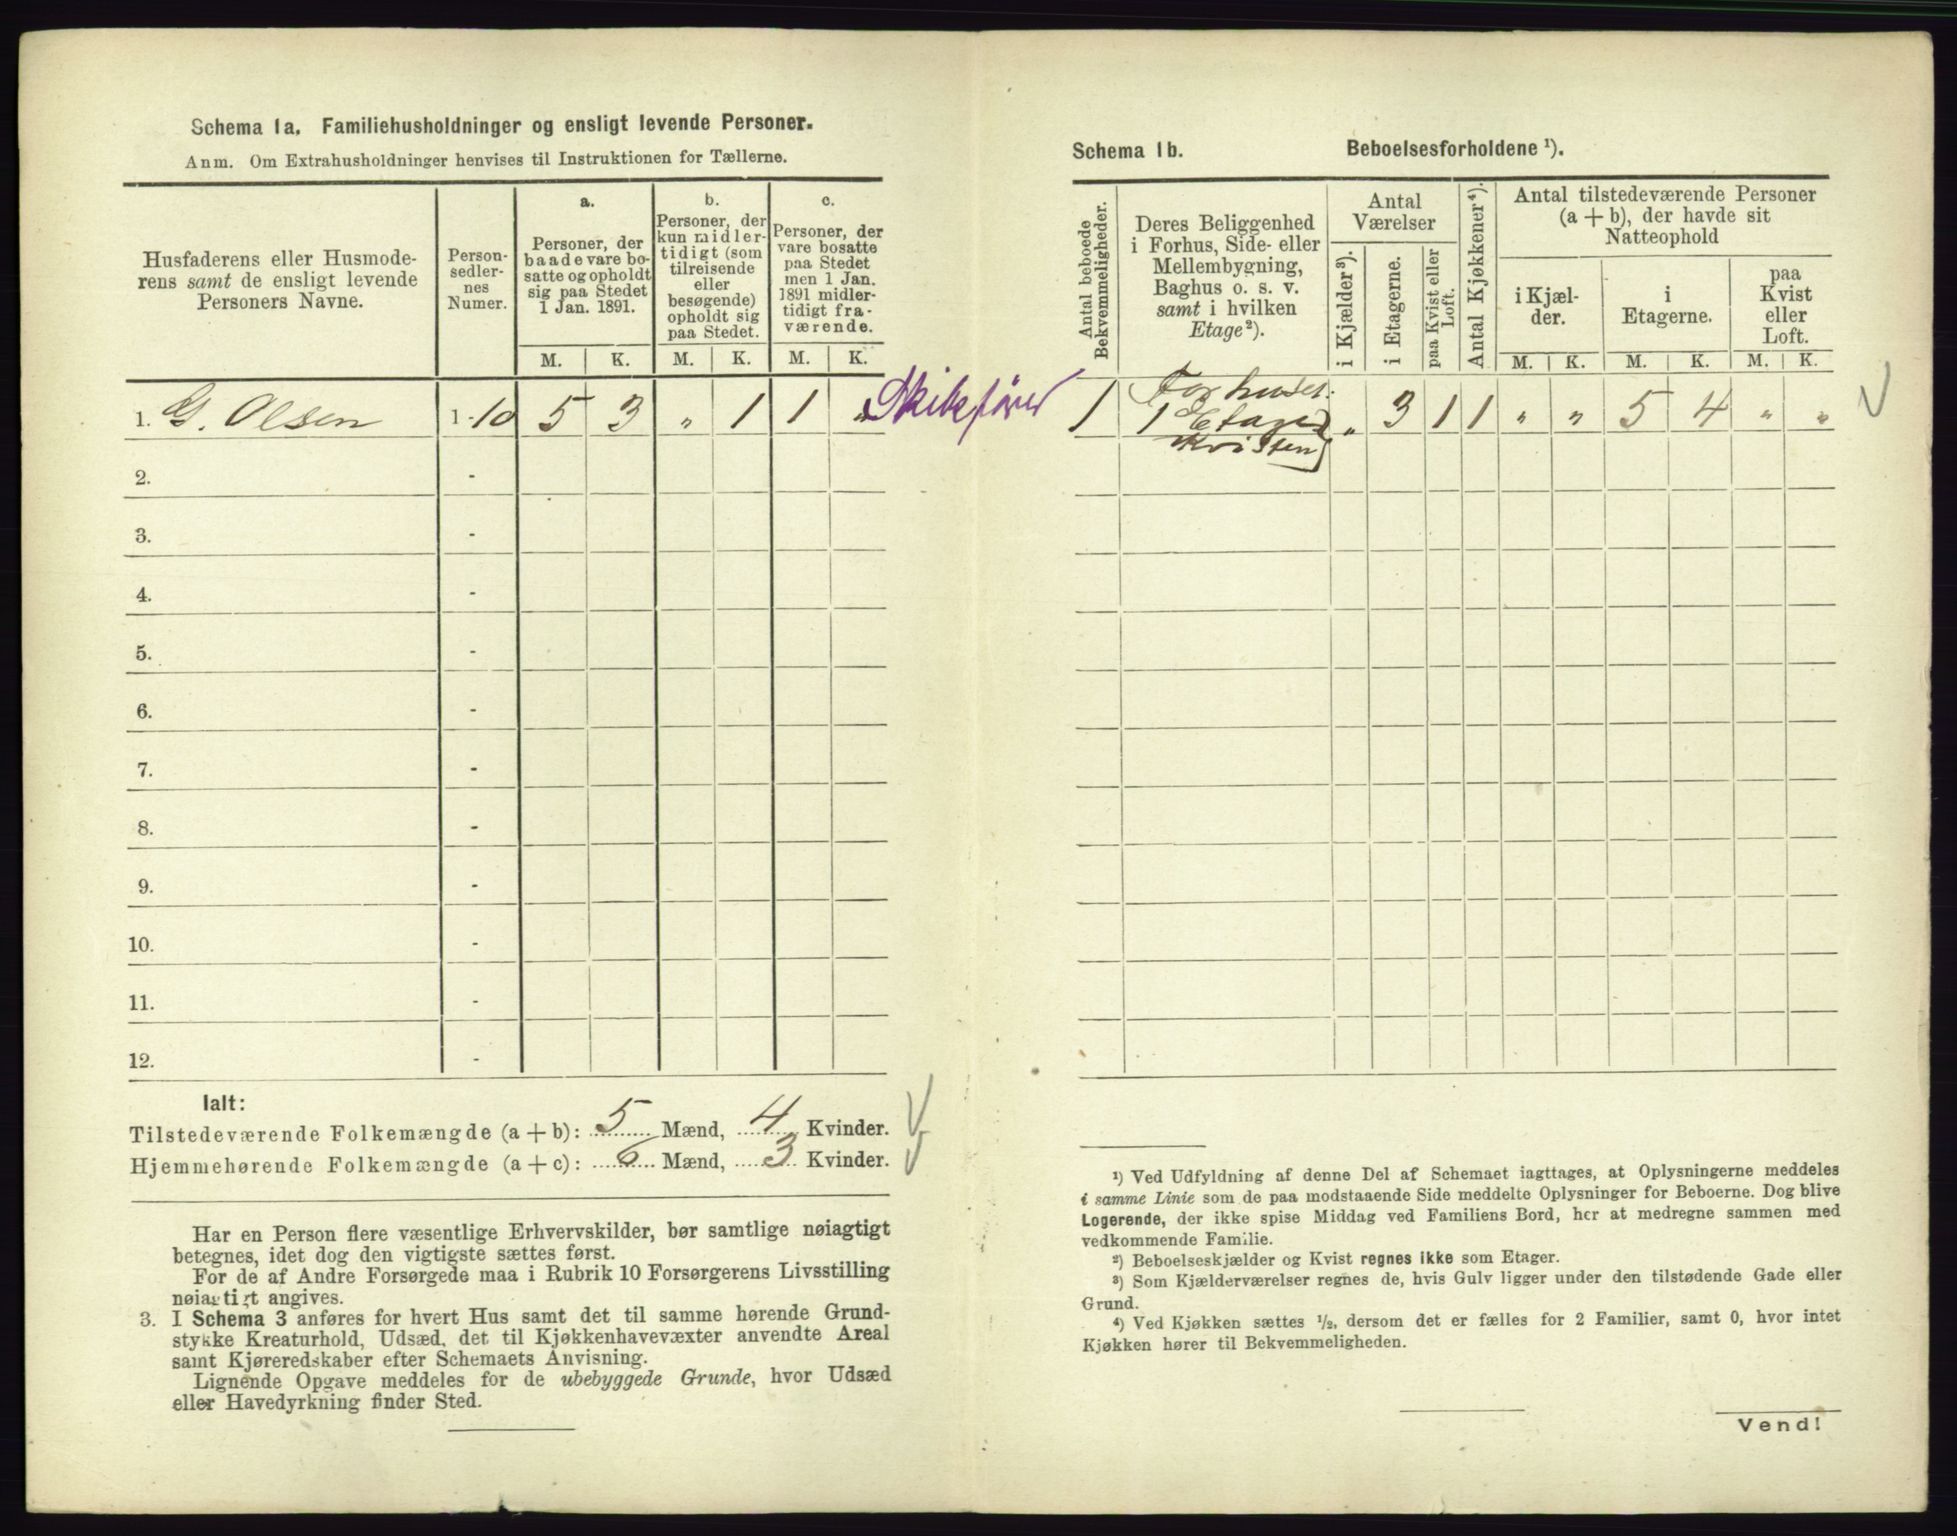 Schema 1a. Familiehusholdninger og ensligt levende Personer.
Anm. Om Extrahusholdninger henvises til Instruktionen for Tællerne.
Husfaderens eller Husmode-
rens samt de ensligt levende
Personers Navne.
Person-
sedler-
nes
Numer.
a.
Personer, der
baade vare bo-
satte og opholdt
sig paa Stedet
1 Jan. 1891.
b.
Personer, der
kun midler-
tidigt (som
tilreisende
eller
besøgende)
opholdt sig
paa Stedet.
c.
Personer, der
vare bosatte
paa Stedet
men 1 Jan.
1891 midler-
tidigt fra-
værende.
M. K. M. K. M. K.
1. G. Olsen 1-10 5 3 " 1 1 " Skibsfører
2. -
3. -
4. -
5. -
6. -
7. -
8. -
9. -
10. -
11. -
12. -
Ialt:
Tilstedeværende Folkemængde (a + b): 5 Mænd, 4 Kvinder.
Hjemmehørende Folkemængde (a + c): 6 Mænd, 3 Kvinder.
Har en Person flere væsentlige Erhvervskilder, bør samtlige nøiagtigt
betegnes, idet dog den vigtigste sættes først.
For de af Andre Forsørgede maa i Rubrik 10 Forsørgerens Livsstilling
nøiagtigt angives.
3. I Schema 3 anføres for hvert Hus samt det til samme hørende Grund-
stykke Kreaturhold, Udsæd, det til Kjøkkenhavevæxter anvendte Areal
samt Kjøreredskaber efter Schemaets Anvisning.
Lignende Opgave meddeles for de ubebyggede Grunde, hvor Udsæd
eller Havedyrkning finder Sted.
Schema 1b. Beboelsesforholdene ¹).
Antal beboede
Bekvemmeligheder.
Deres Beliggenhed
i Forhus, Side- eller
Mellembygning,
Baghus o. s. v.
samt i hvilken
Etage²).
Antal
Værelser
i Kjælder³).
i Etagerne.
paa Kvist eller
Loft.
Antal Kjøkkener⁴).
Antal tilstedeværende Personer
(a + b), der havde sit
Natteophold
i Kjæl-
der.
i
Etagerne.
paa
Kvist
eller
Loft.
M. K. M. K. M. K.
Forhuset.
1 1 Etage " 3 1 1 " " 5 4 " "
Kvisten
¹) Ved Udfyldning af denne Del af Schemaet iagttages, at Oplysningerne meddeles
i samme Linie som de paa modstaaende Side meddelte Oplysninger for Beboerne. Dog blive
Logerende, der ikke spise Middag ved Familiens Bord, her at medregne sammen med
vedkommende Familie.
²) Beboelseskjælder og Kvist regnes ikke som Etager.
³) Som Kjælderværelser regnes de, hvis Gulv ligger under den tilstødende Gade eller
Grund.
⁴) Ved Kjøkken sættes ½, dersom det er fælles for 2 Familier, samt 0, hvor intet
Kjøkken hører til Bekvemmeligheden.
Vend!